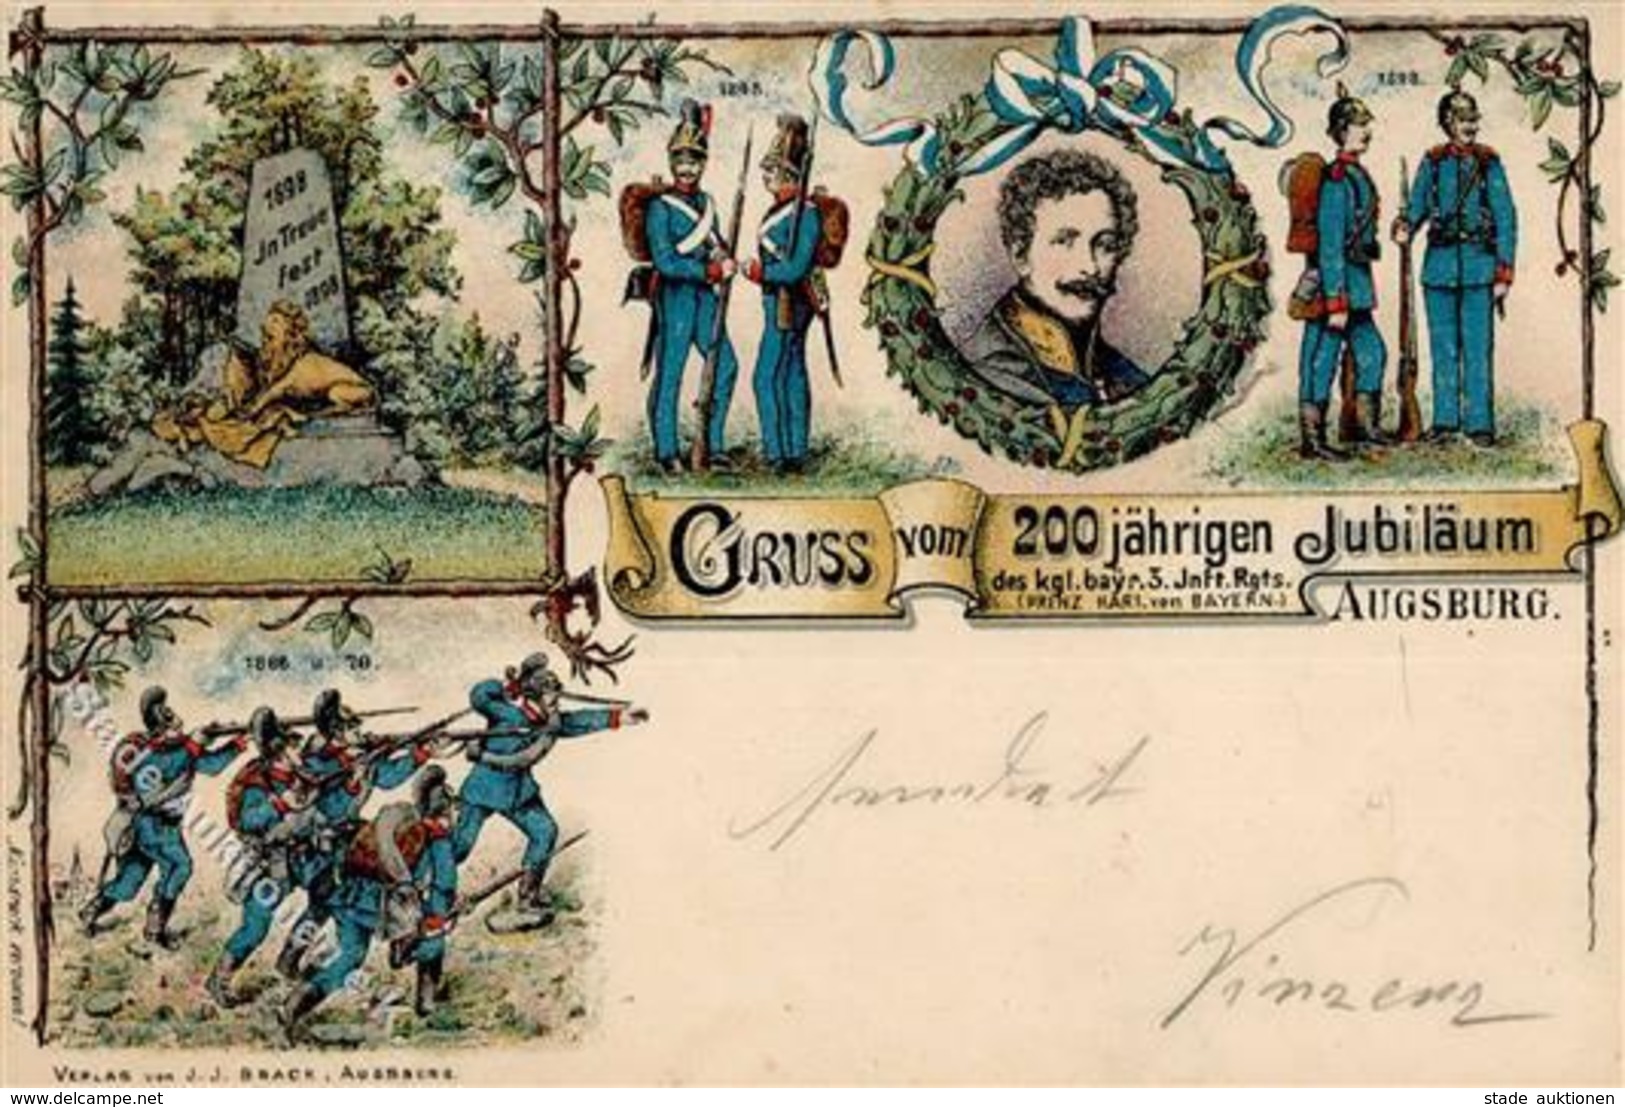 1898
In Treue
fest
1898
GRUSS vom 200 jährigen Jubiläum
des kgl. bayr. 3. Inft. Rgts.
(PRINZ KARL von BAYERN.)
AUGSBURG.
1866 u. 70.
Vinzenz
VERLAG von J. J. BRACK, AUGSBURG.
www.delcampe.net
stade auktionen